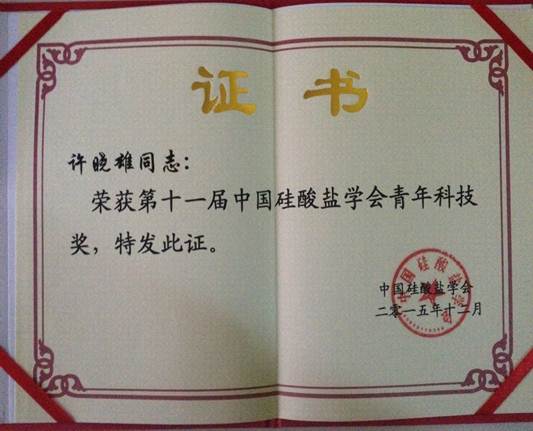 证书
许晓雄同志：
荣获第十一届中国硅酸盐学会青年科技
奖，特发此证。
中国硅酸盐学会
二零一五年十二月
中国硅酸盐学会